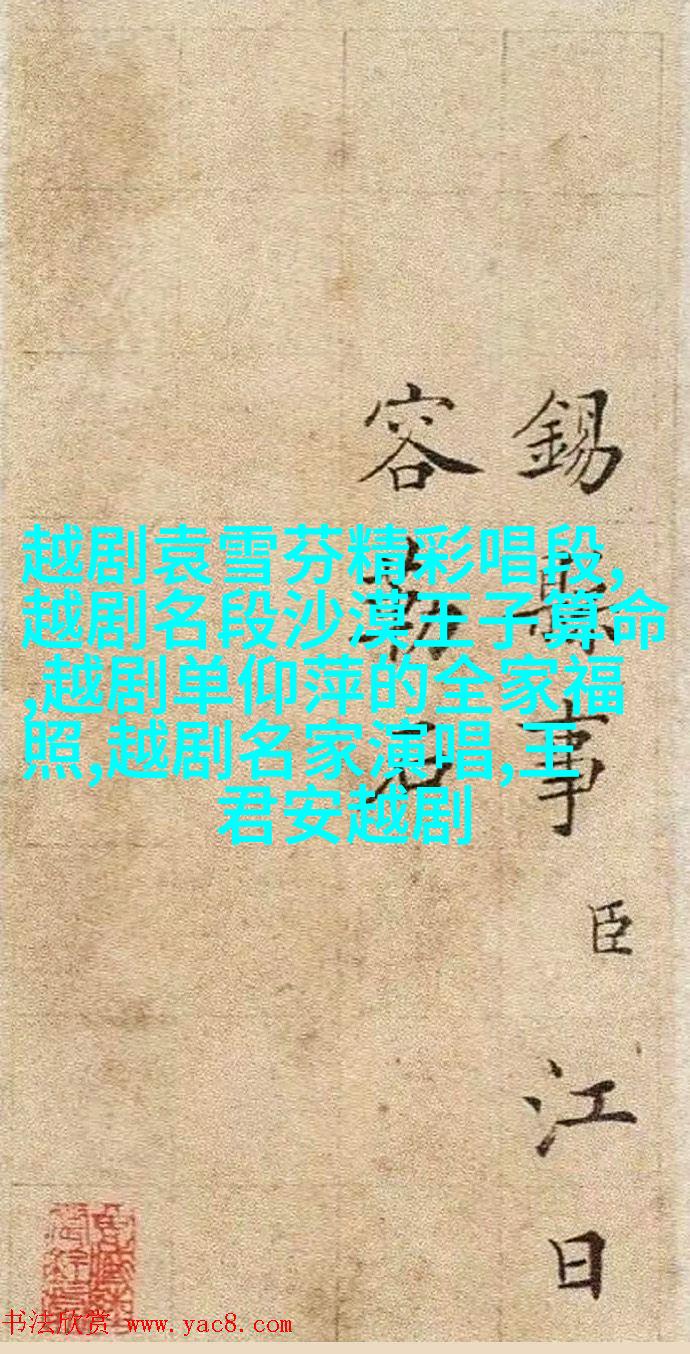 越剧袁雪芬精彩唱段,
越剧名段沙漠王子算命
,越剧单仰萍的全家福
照,越剧名家演唱,王
君安越剧
錫縣事臣江日
容勒石
书法欣赏 www.yac8.com